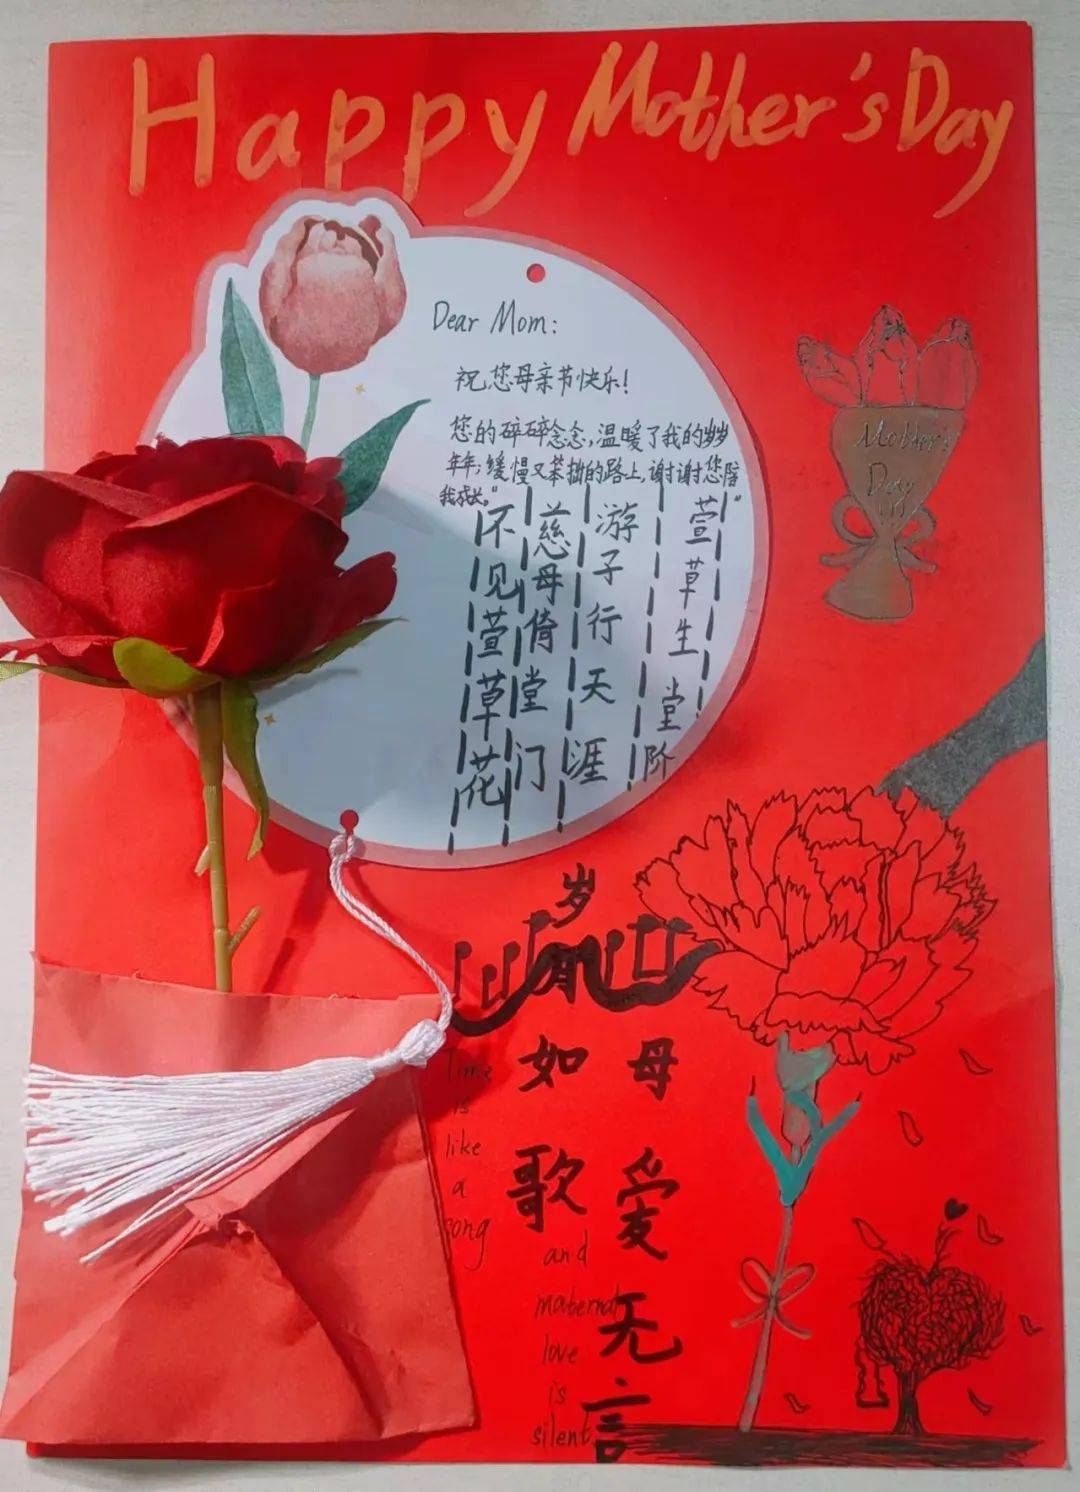 Happy Mother's Day
Dear Mom:
祝您母亲节快乐!
您的碎碎念念,温暖了我的岁岁
年年;缓慢又笨拙的路上,谢谢您陪
我成长。"
萱草生堂阶
游子行天涯
慈母倚堂门
不见萱草花
Mother's
Day
岁月如歌
母爱无言
Time
is
like
a
song
and
maternal
love
is
silent